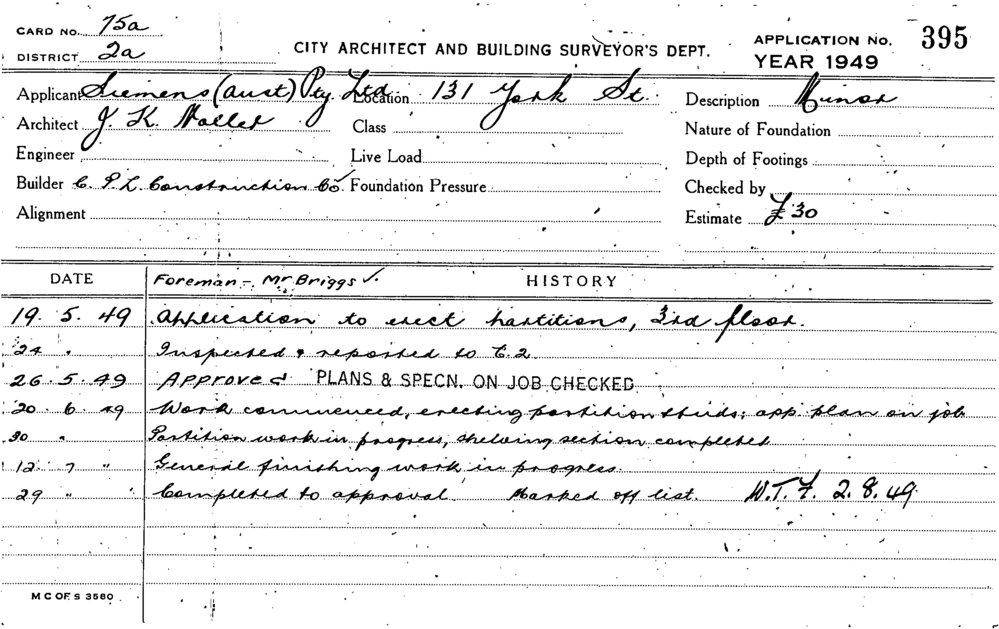 CARD NO. 75a
DISTRICT 2a
CITY ARCHITECT AND BUILDING SURVEYOR'S DEPT.
APPLICATION No. 395
YEAR 1949
Applicant Siemens (Aust) Pty. Ltd Location 131 York St. Description Minor
Architect J. K. Class Nature of Foundation
Engineer Live Load Depth of Footings
Builder C. P. L. Construction Co. Foundation Pressure Checked by
Alignment Estimate £30
DATE Foreman - Mr Briggs ✓. HISTORY
19. 5. 49 Application to erect partitions, 3rd floor.
24 " Inspected & reported to C.2.
26. 5. 49 Approved PLANS & SPECN. ON JOB CHECKED
20. 6. 49 Work commenced, erecting partition studs; app. plan on job
30 " Partition work in progress, shelving section completed
12 7 " General finishing work in progress.
29 " " Completed to approval. Marked off list. W.T.F. 2.8.49.
M C OF S 3580